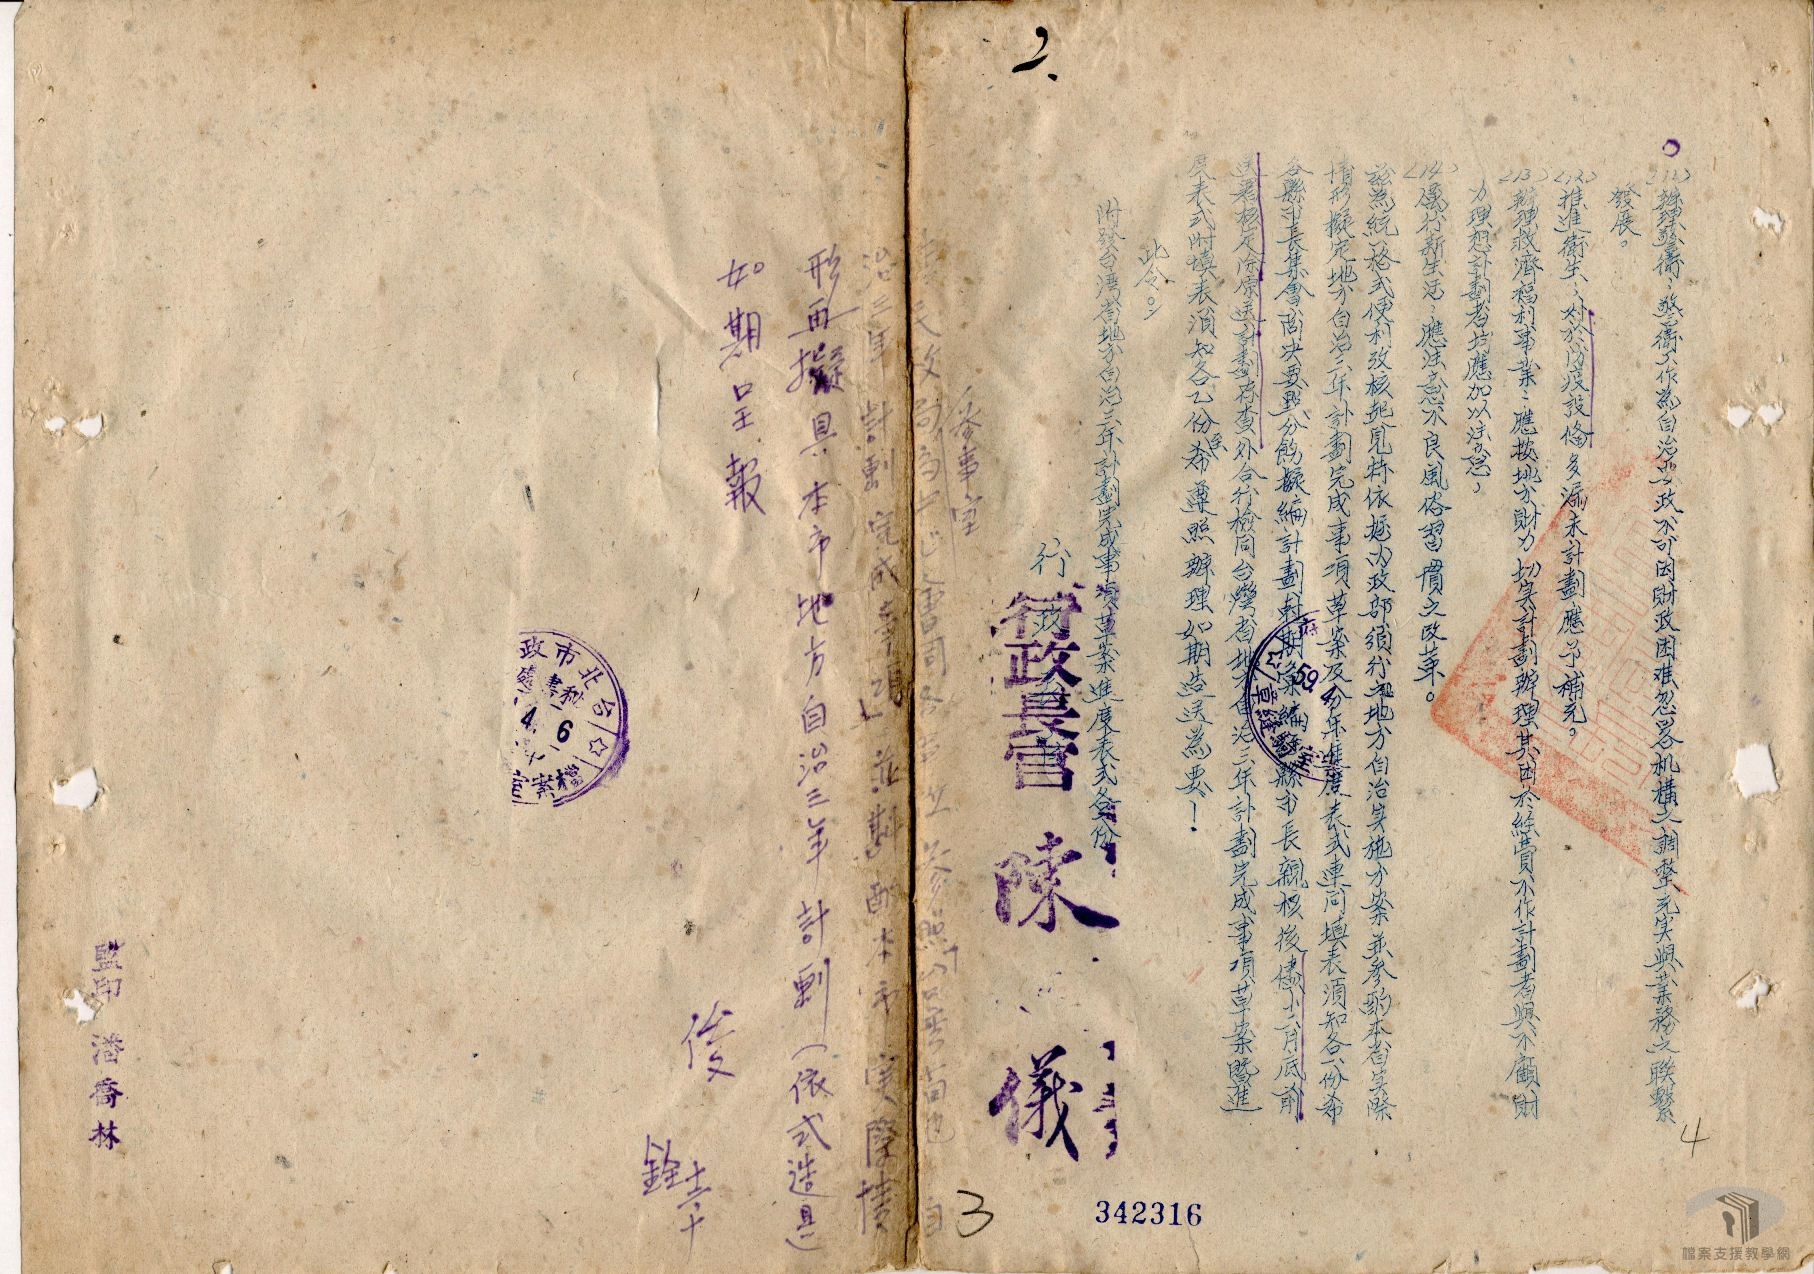 2、
(11)辦理警衛：警衛工作為自治要政不可因財政困难忽畧机構之調整充实與業務之联繫
發展。
(12)推進衛生：对於防疫設俻多漏未計劃應予補充。
(13)辦理救濟福利事業：應按地方財力切实計劃辦理其因於經費不作計劃者與不顧財
力理想計劃者均應加以注意，
(14)厲行新生活：應注意不良風俗習慣之改革。
茲為統一格式便利攷核起見特依据内政部頒行之地方自治实施方案並參酌本省实際
情形擬定地方自治三年計劃完成事項草案及分年進度表式連同填表須知各一份希
各縣市長集會商决要點分飭擬編計劃尅期彙編縣市長親核後儘十二月底前
送署核定除原送計劃存查外合行檢同台灣省地方自治三年計劃完成事項草案暨進
度表式附填表須知各乙份希遵照辦理如期造送為要！
此令。
附發台灣省地方自治三年計劃完成事項草案進度表式各份
行政長官
行政長官 陳儀
參事室
治三年計劃完成事項」並斟酌本市实際情
形再擬具本市地方自治三年計劃（依式造具）
如期呈報
俊
銓
台北市政府
秘書處
4 6
檔案室
監印 潘喬林
342316
3
4
檔案支援教學網